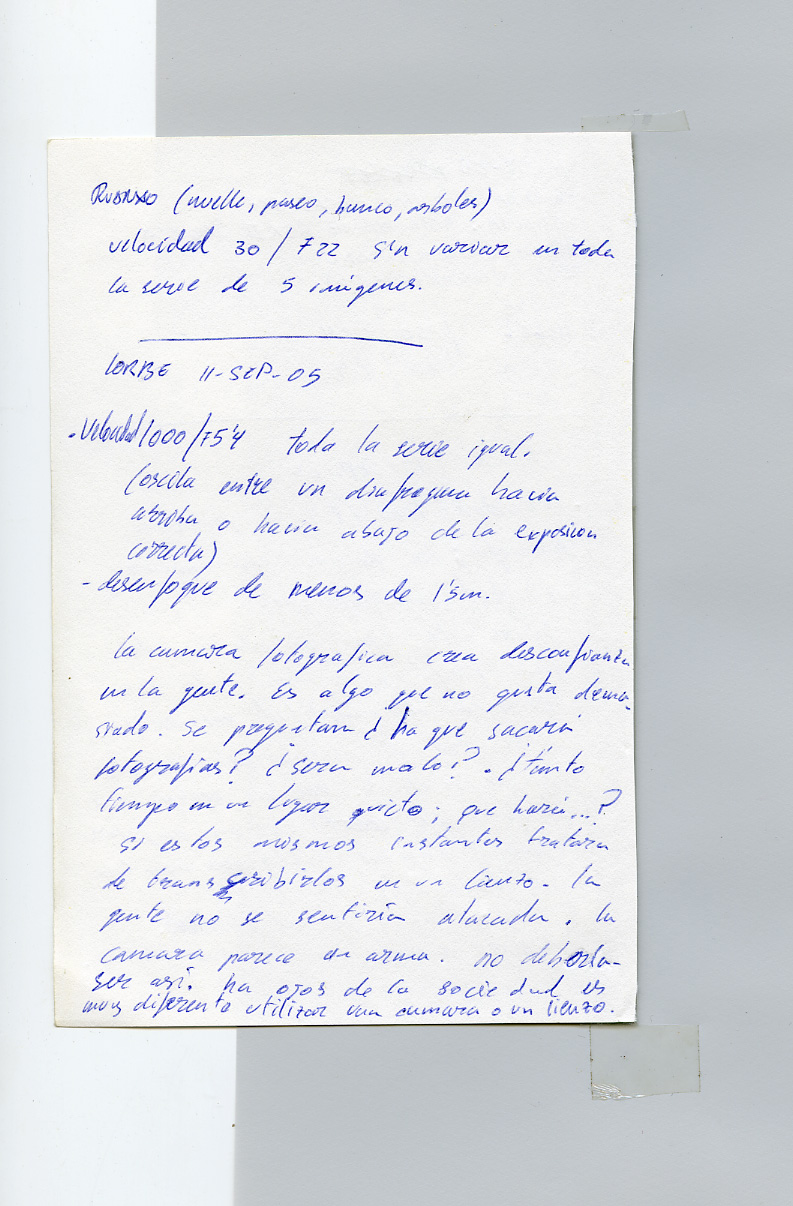 (muelle, paseo, banco, arboles)
velocidad 30/F22 sin variar en toda
la serie de 5 imágenes.
LORBE 11-SEP-05
- Velocidad 1000/F5'4 toda la serie igual.
(oscila entre un diafragma hacia
arriba o hacia abajo de la exposicion
correcta)
- desenfoque de menos de 1'5m.
la camara fotografica crea desconfianza
en la gente. Es algo que no gusta dema-
siado. Se preguntan ¿ha que sacará
fotografias? ¿sera malo?. ¿tanto
tiempo en un lugar quieto; que hará...?
si estos mismos instantes tratara
de transcribirlos en un lienzo. la
gente no se sentiría atacada. la
camara parece un arma. no debería
ser así. ha ojos de la sociedad es
muy diferente utilizar una camara o un lienzo.